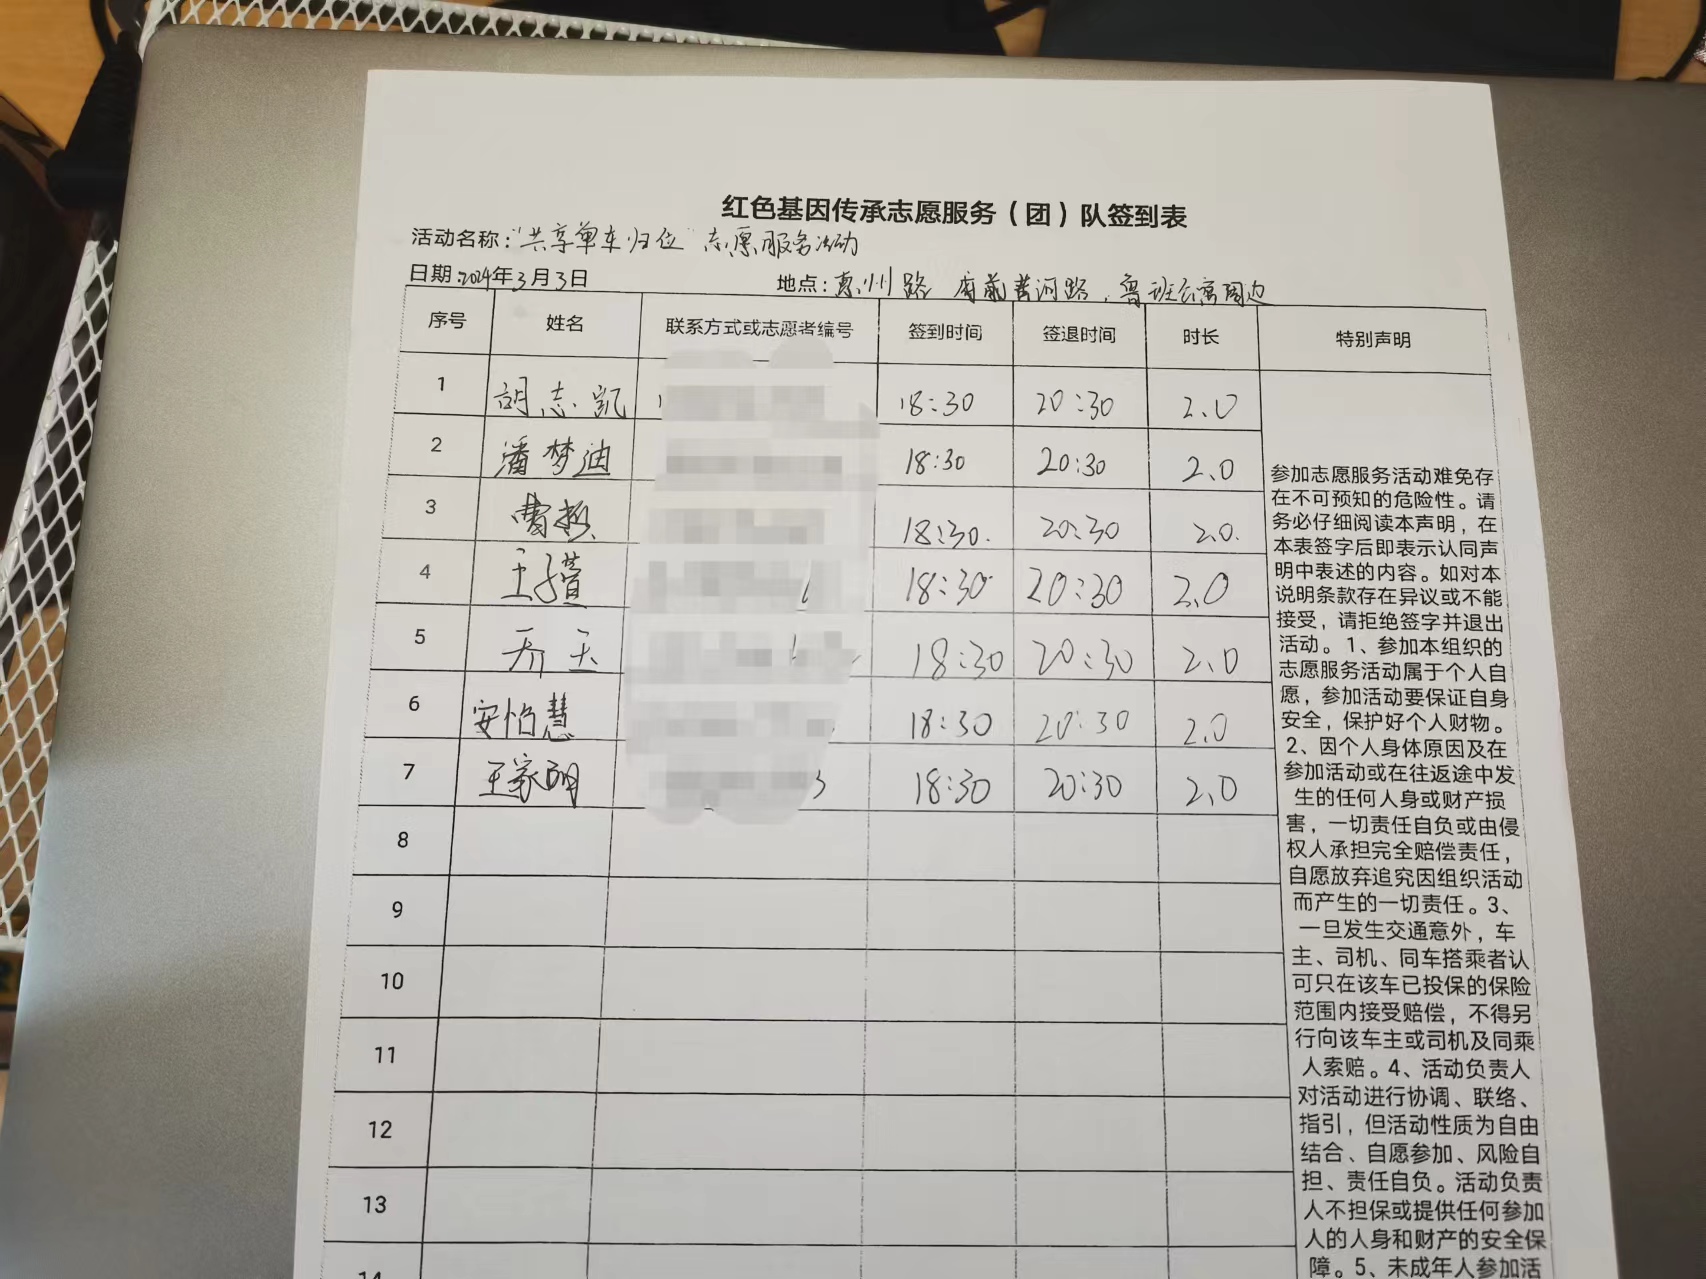 红色基因传承志愿服务（团）队签到表
活动名称："共享单车归位"志愿服务活动
日期：2024年3月3日 地点：惠州路 黄河路，鲁班公寓周边
序号 姓名 联系方式或志愿者编号 签到时间 签退时间 时长 特别声明
1 胡志凯 18:30 20:30 2.0
2 潘梦迪 18:30 20:30 2.0
3 曹 18:30. 20:30 2.0.
4 王子萱 18:30 20:30 2.0
5 乔玉 18:30 20:30 2.0
6 安怡慧 18:30 20:30 2.0
7 王家明 3 18:30 20:30 2.0
8
9
10
11
12
13
14
参加志愿服务活动难免存
在不可预知的危险性。请
务必仔细阅读本声明，在
本表签字后即表示认同声
明中表述的内容。如对本
说明条款存在异议或不能
接受，请拒绝签字并退出
活动。1、参加本组织的
志愿服务活动属于个人自
愿，参加活动要保证自身
安全，保护好个人财物。
2、因个人身体原因及在
参加活动或在往返途中发
生的任何人身或财产损
害，一切责任自负或由侵
权人承担完全赔偿责任，
自愿放弃追究因组织活动
而产生的一切责任。3、
一旦发生交通意外，车
主、司机、同车搭乘者认
可只在该车已投保的保险
范围内接受赔偿，不得另
行向该车主或司机及同乘
人索赔。4、活动负责人
对活动进行协调、联络、
指引，但活动性质为自由
结合、自愿参加、风险自
担、责任自负。活动负责
人不担保或提供任何参加
人的人身和财产的安全保
障。5、未成年人参加活